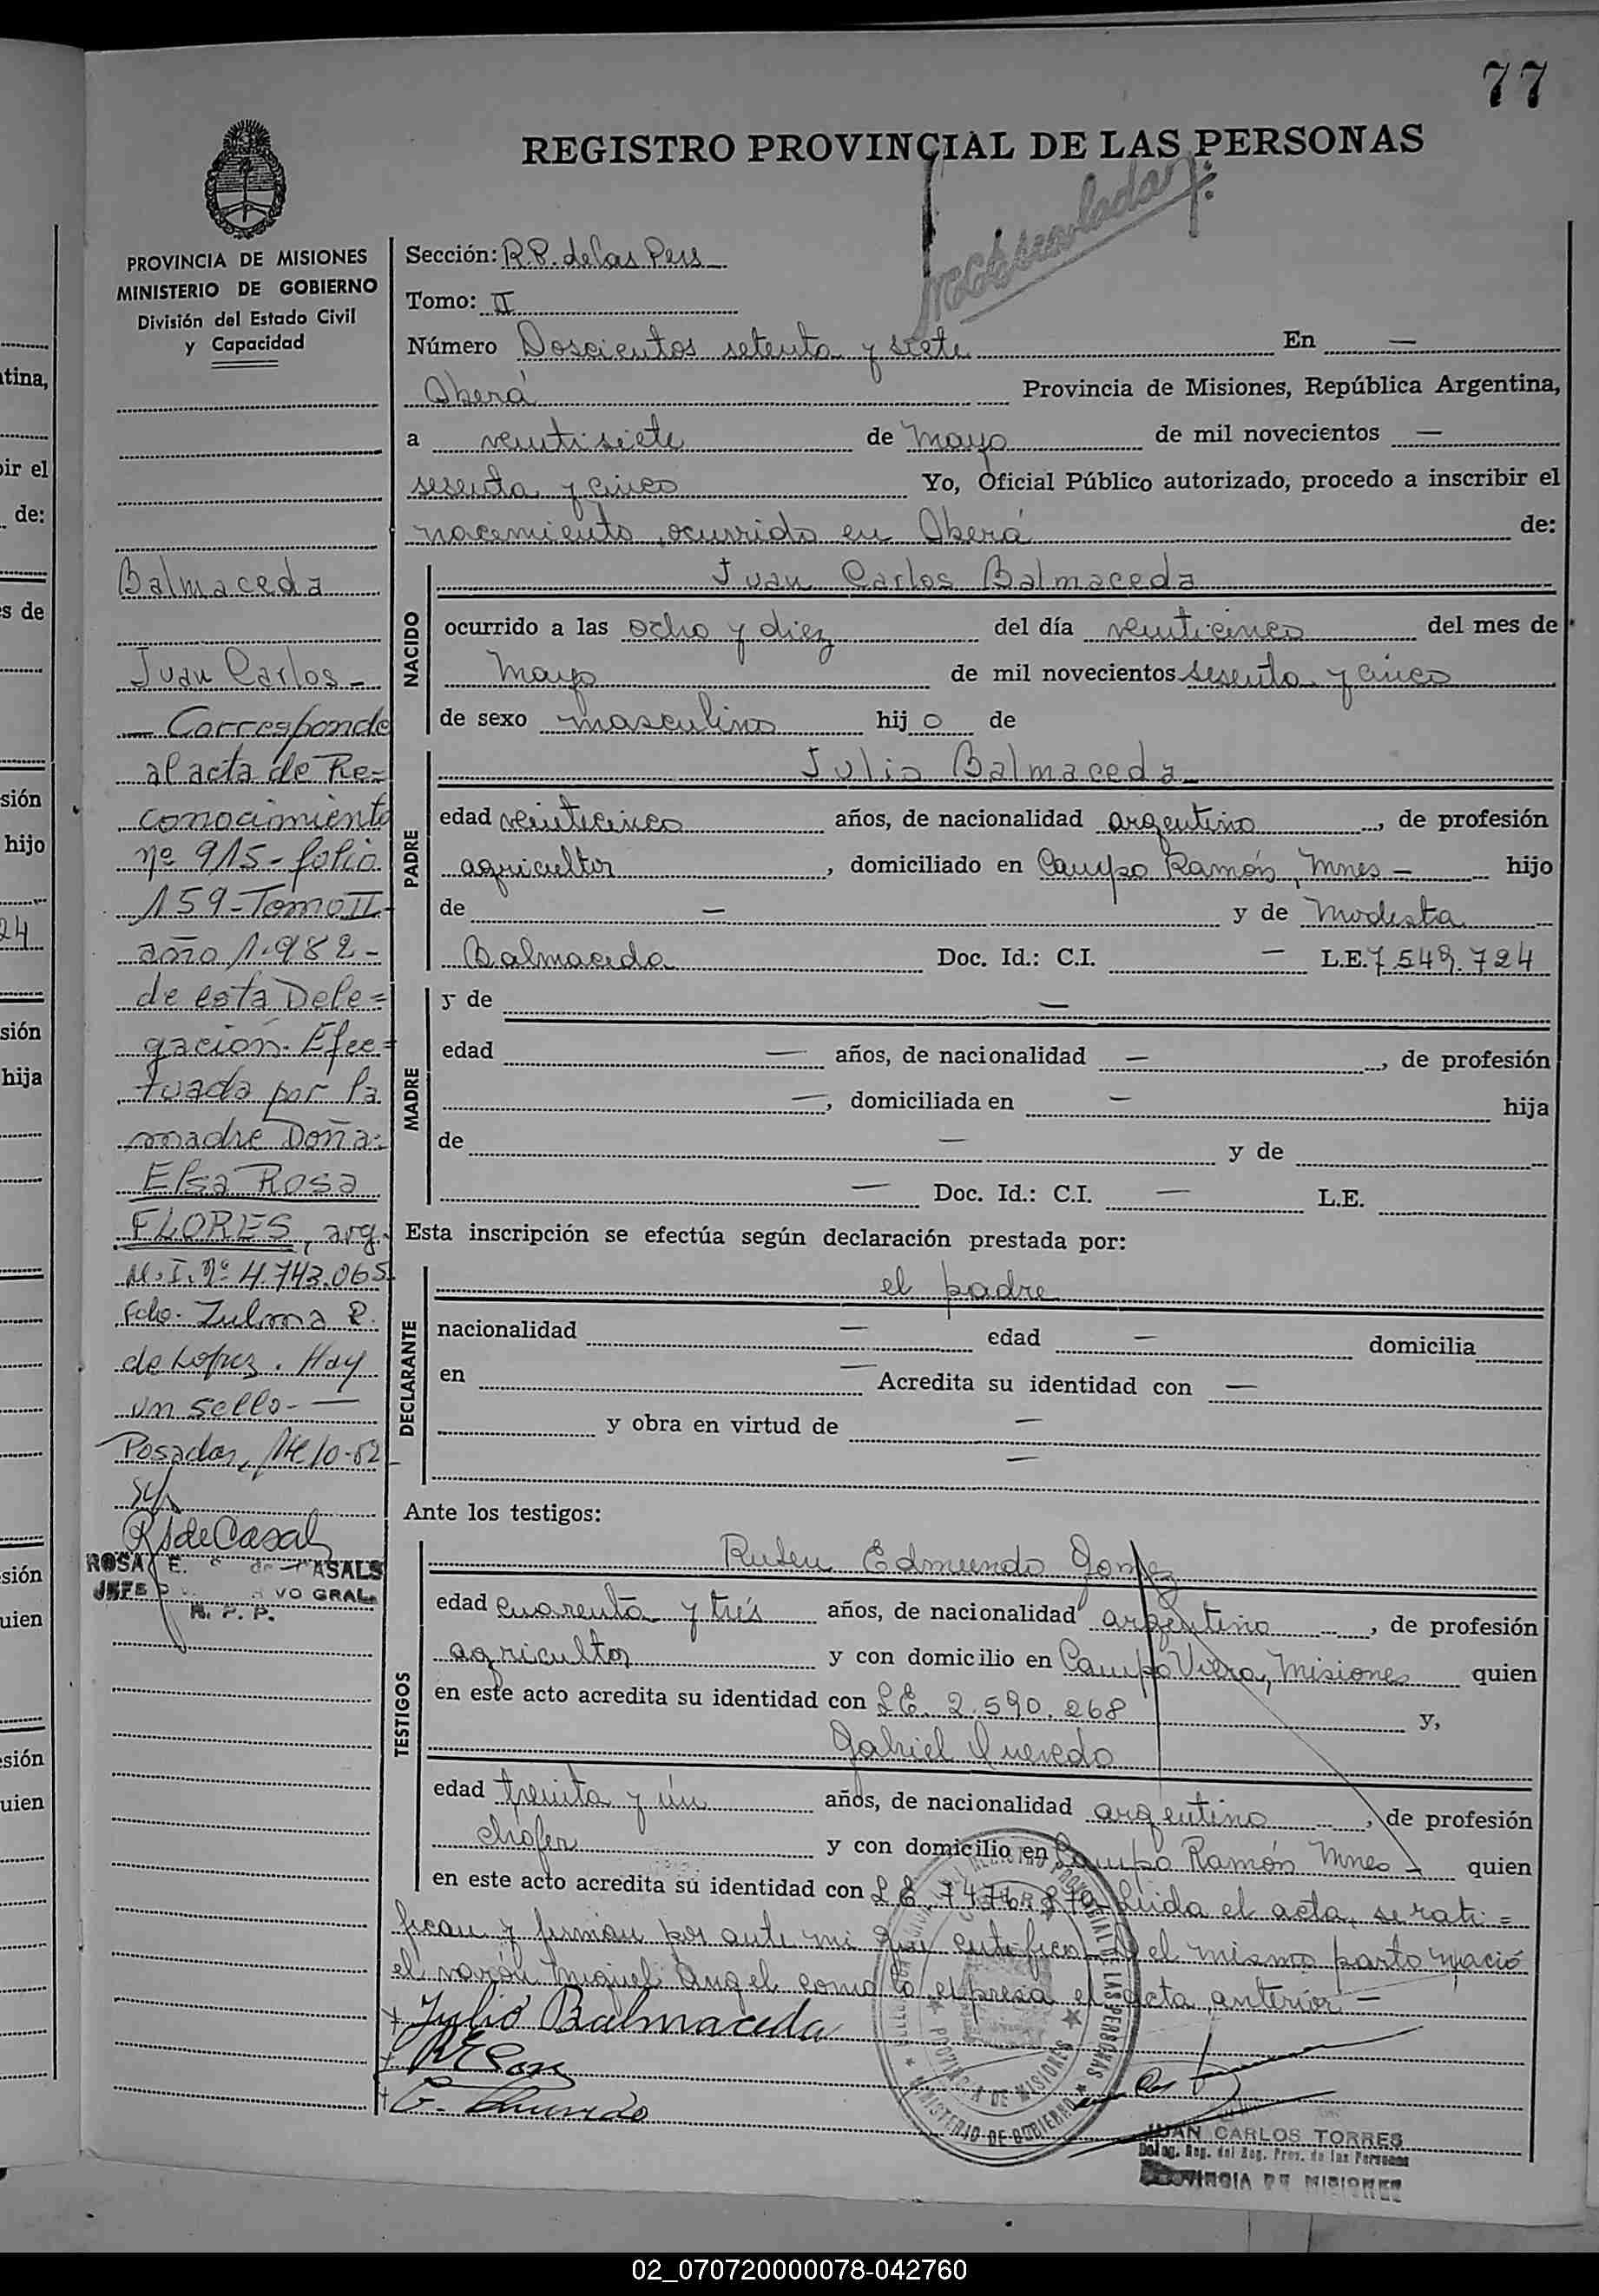 77
REGISTRO PROVINCIAL DE LAS PERSONAS
PROVINCIA DE MISIONES
MINISTERIO DE GOBIERNO
División del Estado Civil
y Capacidad
Sección: R.P. de las Pers
Tomo: II
Número Doscientos setenta y siete En —
Oberá Provincia de Misiones, República Argentina,
a veintisiete de Mayo de mil novecientos —
sesenta y cinco Yo, Oficial Público autorizado, procedo a inscribir el
nacimiento, ocurrido en Oberá de:
NACIDO
Juan Carlos Balmaceda
ocurrido a las ocho y diez del día veinticinco del mes de
Mayo de mil novecientos sesenta y cinco
de sexo masculino hijo de
PADRE
Julio Balmaceda
edad veinticinco años, de nacionalidad argentino, de profesión
agricultor, domiciliado en Campo Ramón, Mnes — hijo
de — y de Modesta
Balmaceda Doc. Id.: C.I. — L.E. 7.549.724
MADRE
y de —
edad — años, de nacionalidad —, de profesión
—, domiciliada en — hija
de — y de
— Doc. Id.: C.I. — L.E.
Esta inscripción se efectúa según declaración prestada por:
DECLARANTE
el padre
nacionalidad — edad — domicilia
en — Acredita su identidad con —
y obra en virtud de —
—
Ante los testigos:
TESTIGOS
Ruben Edmundo Gomez
edad cuarenta y trés años, de nacionalidad argentino, de profesión
agricultor y con domicilio en Campo Viera, Misiones quien
en este acto acredita su identidad con L.E. 2.590.268 y,
Gabriel Quevedo
edad treinta y ún años, de nacionalidad argentino, de profesión
chofer y con domicilio en Campo Ramón Mnes — quien
en este acto acredita su identidad con L.E. Leida el acta, se rati=
fican y firman por ante mi que certifico el mismo parto nació
el varón Miguel Angel como lo expresa el acta anterior —
Julio Balmaceda
G. Quevedo
JUAN CARLOS TORRES
Deleg. Reg. del Reg. Prov. de las Personas
PROVINCIA DE MISIONES
MINISTERIO DE GOBIERNO
PROVINCIA DE MISIONES
Balmaceda
Juan Carlos —
— Corresponde
al acta de Re=
conocimiento
nº 915 - folio
159 - Tomo II -
año 1.982 -
de esta Dele=
gación. Efec=
tuada por la
madre Doña:
Elsa Rosa
FLORES, arg.
M.I. Nº 4.743.065
Fdo. Zulma R.
de Lopez. Hay
un sello. —
Posadas,
RSdeCasals
ROSA E. de CASALS
JEFE VO GRAL.
R. P. P.
tina,
ir el
de:
s de
sión
hijo
24
sión
hija
sión
uien
sión
uien
02_070720000078-042760